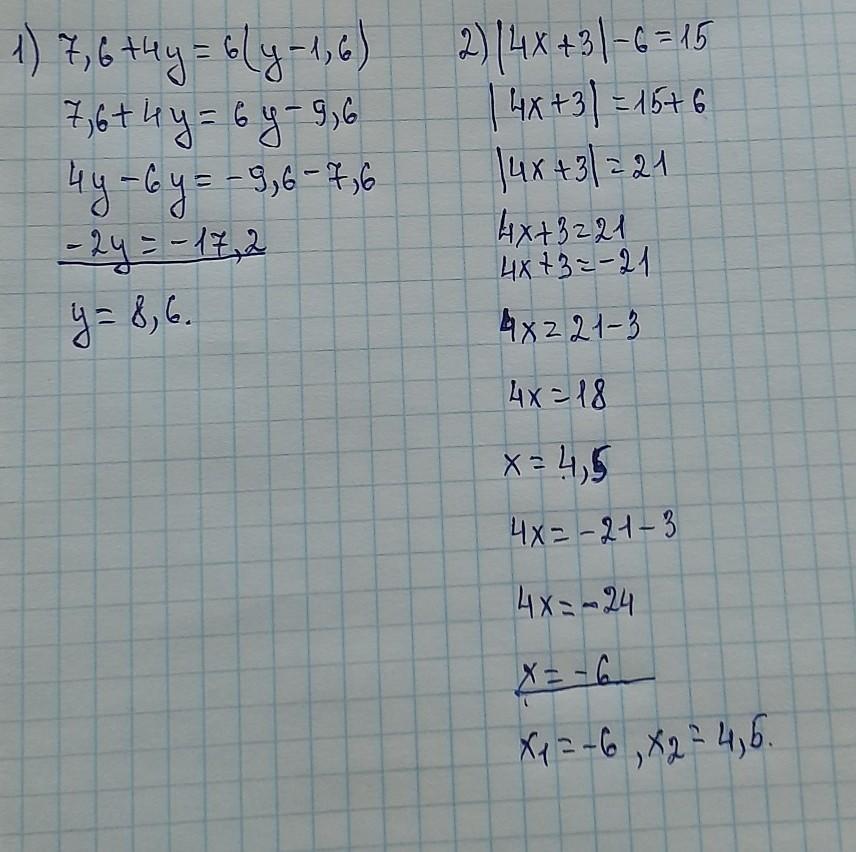 1) 7,6+4y=6(y-1,6)
7,6+4y=6y-9,6
4y-6y=-9,6-7,6
-2y=-17,2
y=8,6.
2) |4x+3|-6=15
|4x+3|=15+6
|4x+3|=21
4x+3=21
4x+3=-21
4x=21-3
4x=18
x=4,5
4x=-21-3
4x=-24
x=-6
x₁=-6, x₂=4,5.